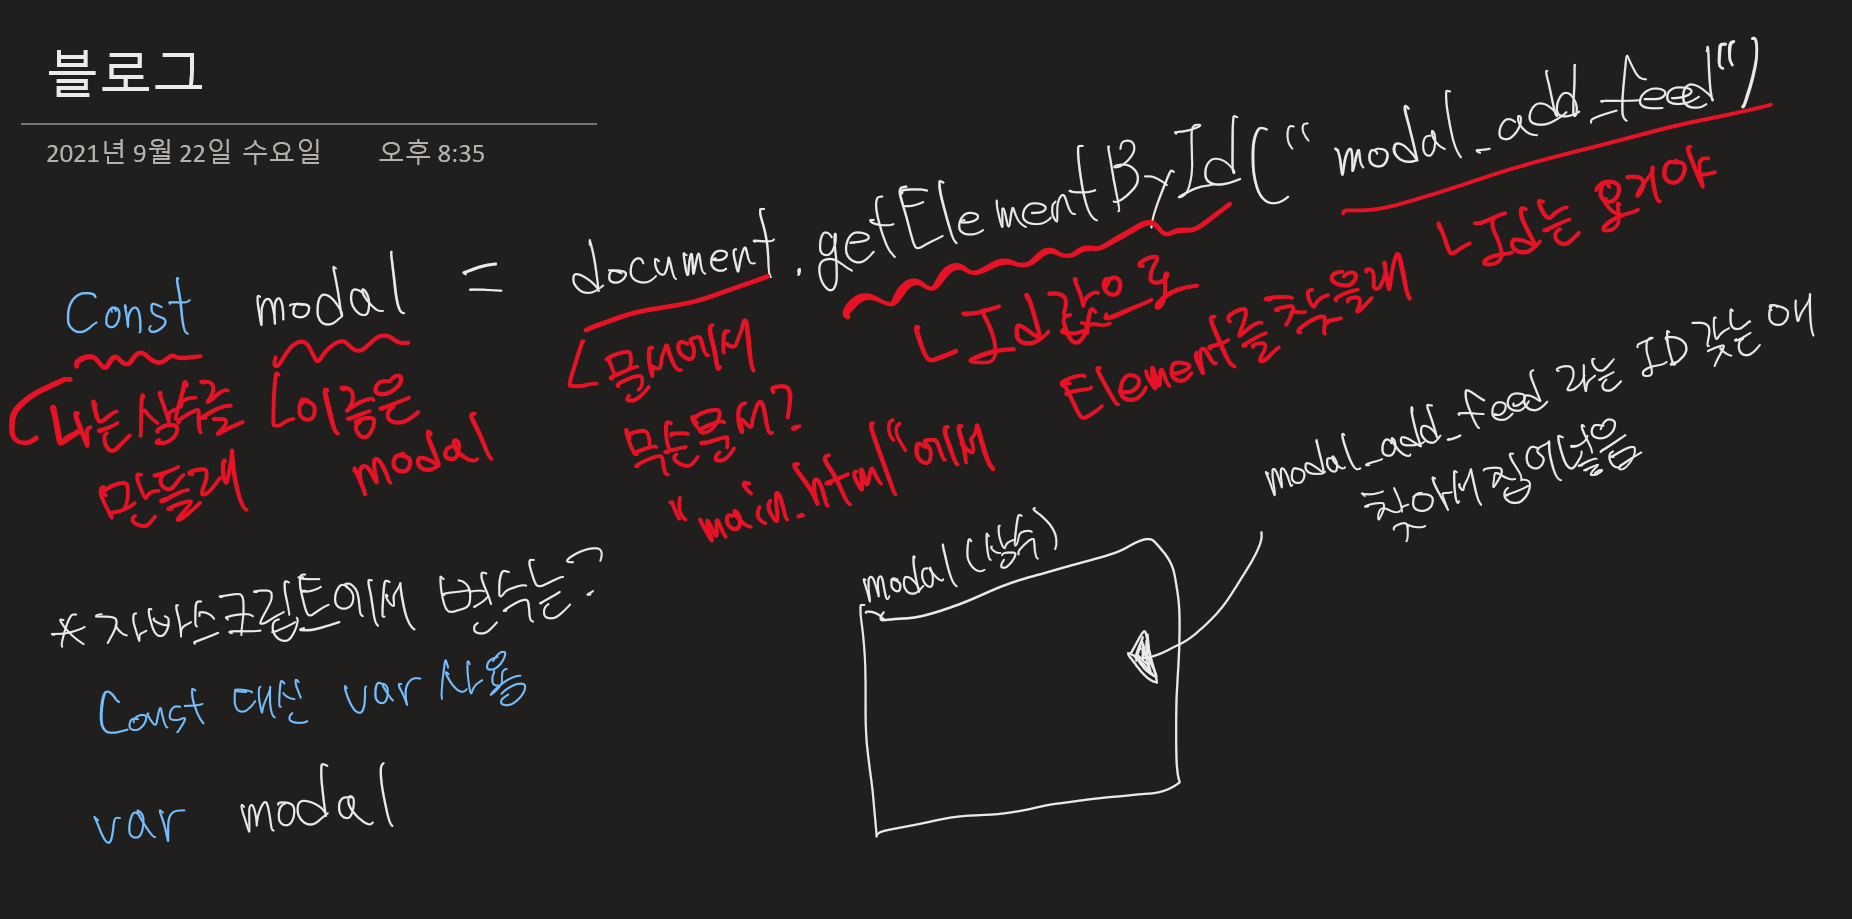 블로그
2021년 9월 22일 수요일 오후 8:35
Const modal = document.getElementById("modal_add_feed")
나는 상수를
만들래
이름은
modal
문서에서
무슨문서?
"main.html"에서
Id값으로
Element를찾을래
Id는 요거야
modal_add_feed 라는 ID 갖는 애
찾아서 집어넣음
modal (상수)
*자바스크립트에서 변수는?
Const 대신 var 사용
var modal